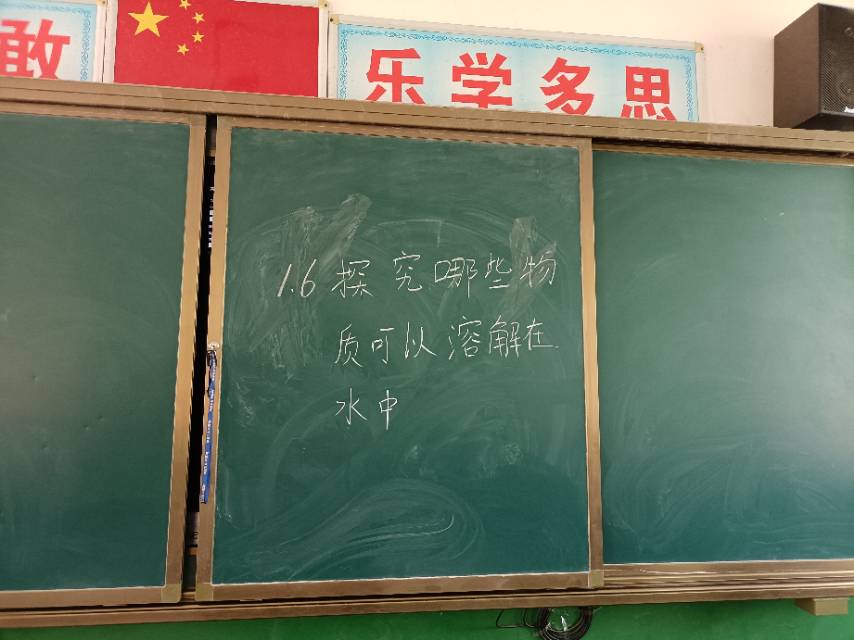 敢
乐学多思
1.6 探究哪些物
质可以溶解在
水中